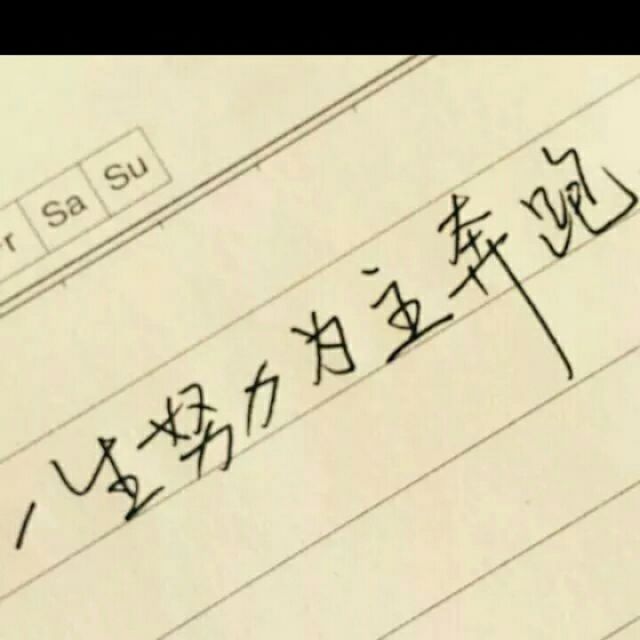 r Sa Su
人生努力为主奔跑